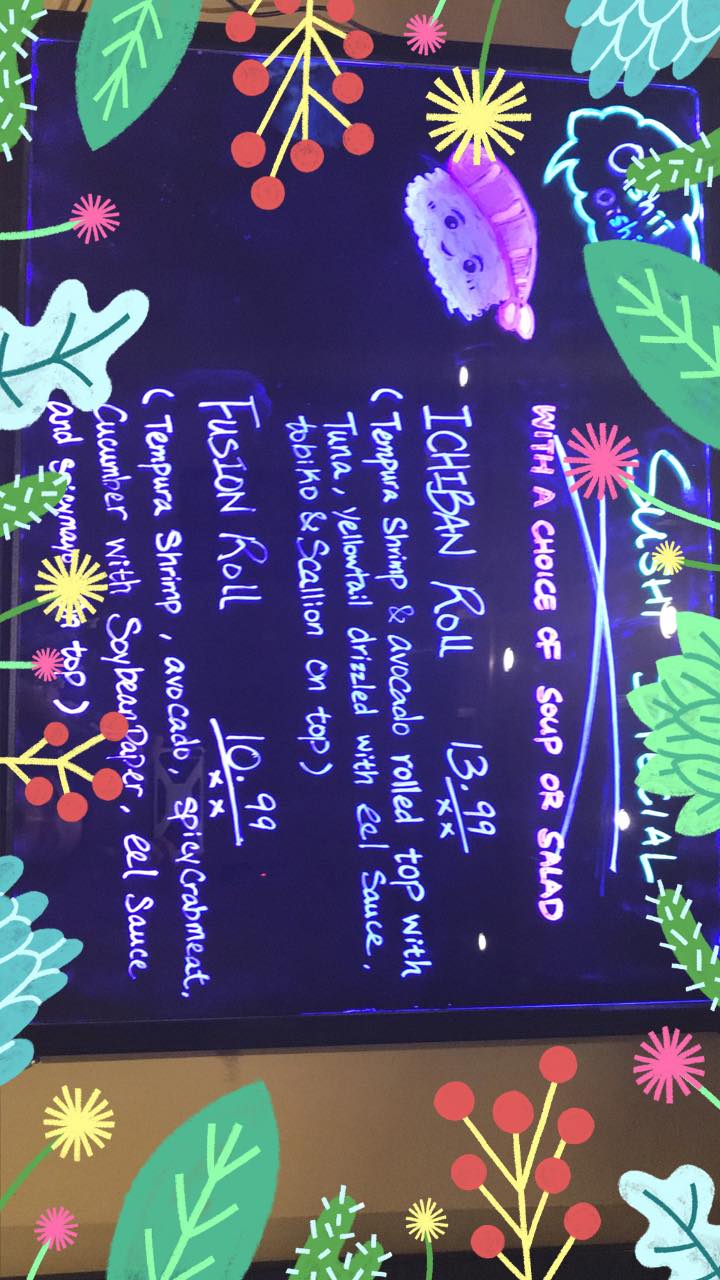 Oishii
Oishi
SUSHI SPECIAL
WITH A CHOICE OF SOUP OR SALAD
ICHIBAN Roll 13.99
xx
(Tempura Shrimp & avocado rolled top with
Tuna, yellowtail drizzled with eel Sauce,
tobiko & Scallion on top)
FUSION Roll 10.99
xx
(Tempura Shrimp, avocado, spicy Crabmeat,
Cucumber with Soybean Paper, eel Sauce
and top)